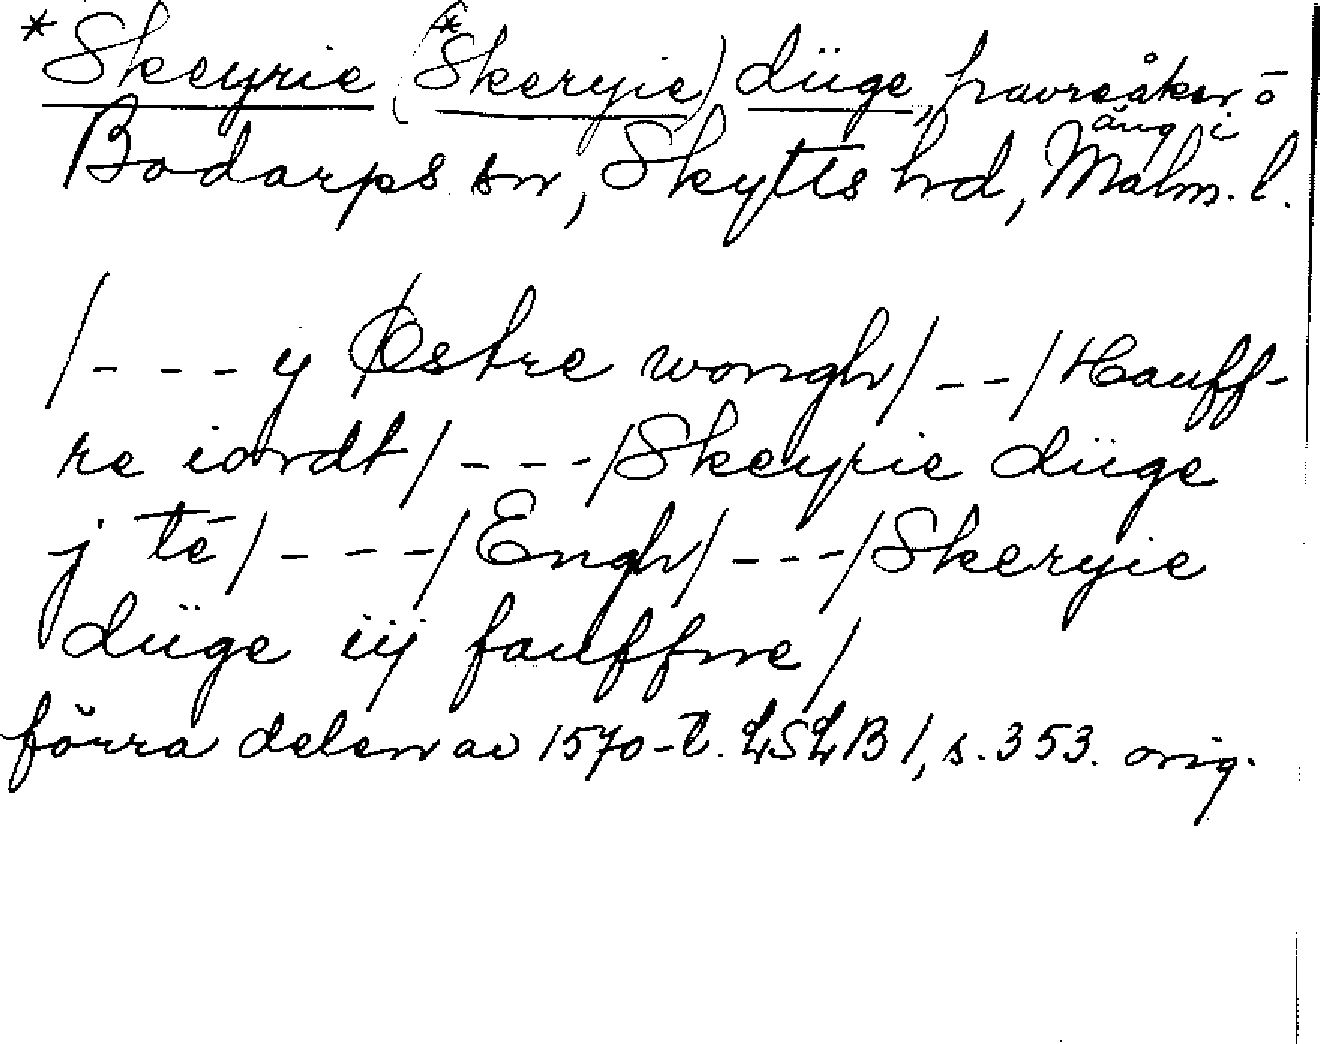 *Skeyrie (*Skeryie) düge, havreåker o
äng i
Bodarps sn, Skytts hd, Malm. l.
/- - - y Østre wongh/ - - /Hauff-
re iordt/ - - - /Skeyrie düge
j te/ - - - /Engh/ - - - /Skeryie
düge iij fauffne/
förra delen av 1570-t. LSLB 1, s. 353. orig.